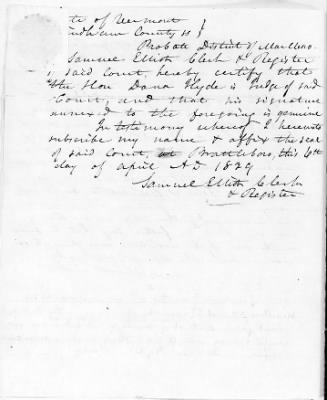 te of Vermont
ndham County ss
Probate District of Marlboro.
Samuel Elliot Clerk & Register
said Court, hereby certify that
the Hon Dana Hyde is Judge of said
Court, and that his signature
annexed to the foregoing is genuine
In testimony whereof I hereunto
subscribe my name & affix the seal
of said Court, at Brattleboro, this 4th
day of April AD 1829
Samuel Elliot Clerk
& Register